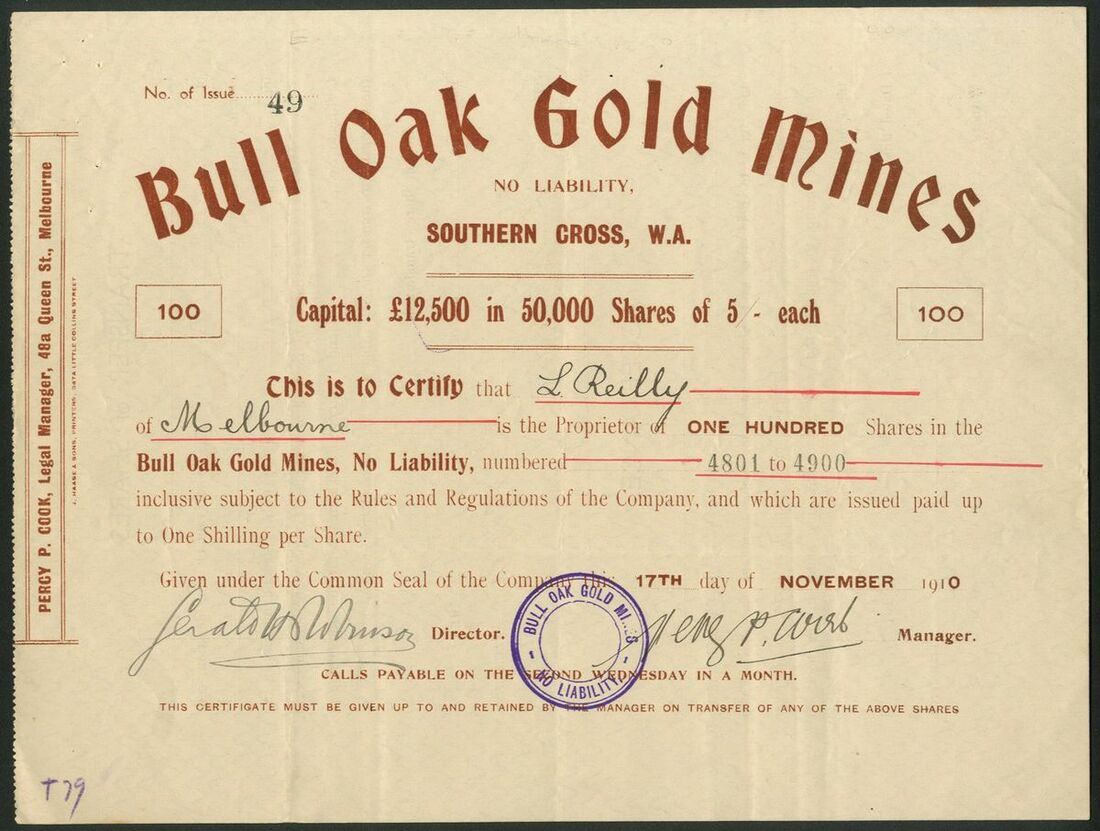 No. of Issue 49
Bull Oak Gold Mines
NO LIABILITY,
SOUTHERN CROSS, W.A.
100
Capital: £12,500 in 50,000 Shares of 5/- each
100
This is to Certify that L. Reilly
of Melbourne is the Proprietor of ONE HUNDRED Shares in the
Bull Oak Gold Mines, No Liability, numbered 4801 to 4900
inclusive subject to the Rules and Regulations of the Company, and which are issued paid up
to One Shilling per Share.
Given under the Common Seal of the Company this 17TH day of NOVEMBER 1910
Director.
Manager.
BULL OAK GOLD MINES
- NO LIABILITY. -
CALLS PAYABLE ON THE SECOND WEDNESDAY IN A MONTH.
THIS CERTIFICATE MUST BE GIVEN UP TO AND RETAINED BY THE MANAGER ON TRANSFER OF ANY OF THE ABOVE SHARES
PERCY P. COOK, Legal Manager, 48a Queen St., Melbourne
HAASE & SONS, PRINTERS, LITTLE COLLINS STREET
T79